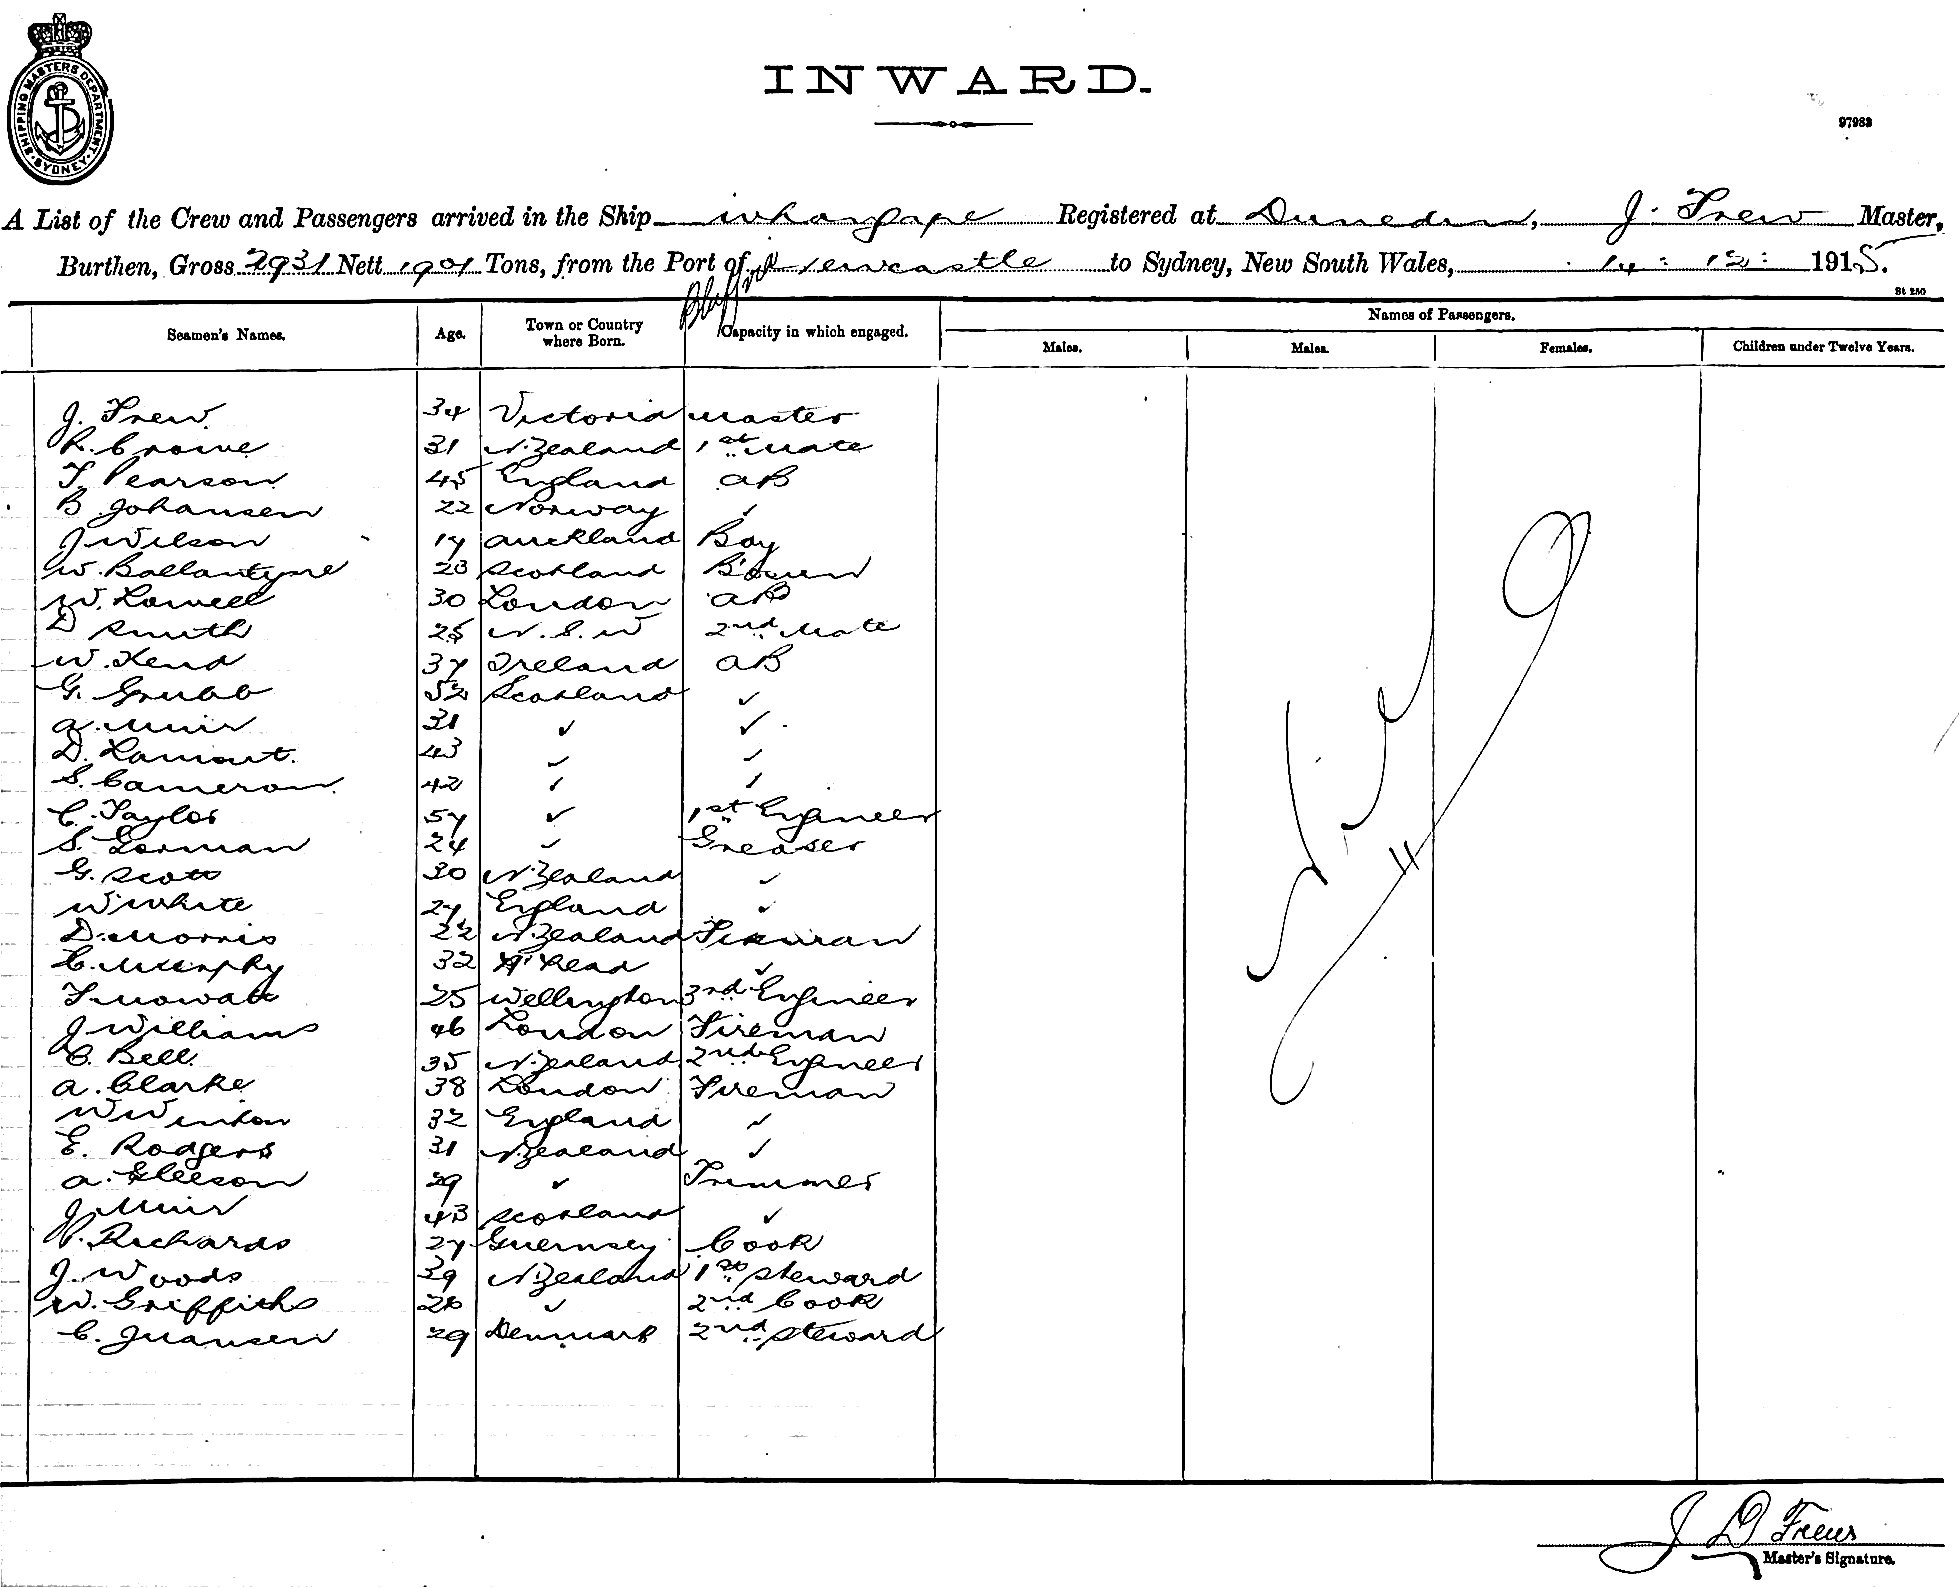 SHIPPING MASTERS DEPARTMENT
SYDNEY
INWARD.
97983
A List of the Crew and Passengers arrived in the Ship Whangape Registered at Dunedin, J. Frew Master,
Burthen, Gross 2931 Nett 1901 Tons, from the Port of Newcastle to Sydney, New South Wales, 14 : 12 : 1915.
Bluff
St 250
Seamen's Names. Age. Town or Country where Born. Capacity in which engaged. Names of Passengers.
Males. Males. Females. Children under Twelve Years.
J. Frew 34 Victoria master
R. Crowe 31 N. Zealand 1st Mate
T. Pearson 45 England AB
B Johansen 22 Norway ✓
J Wilson 17 Auckland Boy
W. Ballantyne 23 Scotland Bosun
W. Lowell 30 London AB
D Smith 25 N. S. W 2nd Mate
W. Kend 37 Ireland AB
G. Grubb 52 Scotland ✓
A. Muir 31 ✓ ✓
D. Lamont. 43 ✓ ✓
S. Cameron. 42 ✓ ✓
C. Taylor 57 ✓ 1st Engineer
S. Gorman 24 ✓ Greaser
G. Scott 30 N. Zealand ✓
W White 27 England ✓
D. Morris 22 N. Zealand Fireman
C. Murphy 32 ✓
T Mowatt 25 Wellington 3rd Engineer
J Williams 46 London Fireman
C. Bell 35 N. Zealand 2nd Engineer
A. Clarke 38 London Fireman
W Winton 32 England ✓
E. Rodgers 31 N Zealand ✓
A. Gleeson 29 ✓ Trimmer
J Muir 43 Scotland ✓
P. Richards 27 Guernsey Cook
J. Woods 39 N Zealand 1st Steward
W. Griffiths 28 ✓ 2nd Cook
C. Juansen 29 Denmark 2nd Steward
Nil
J D Frew
Master's Signature.